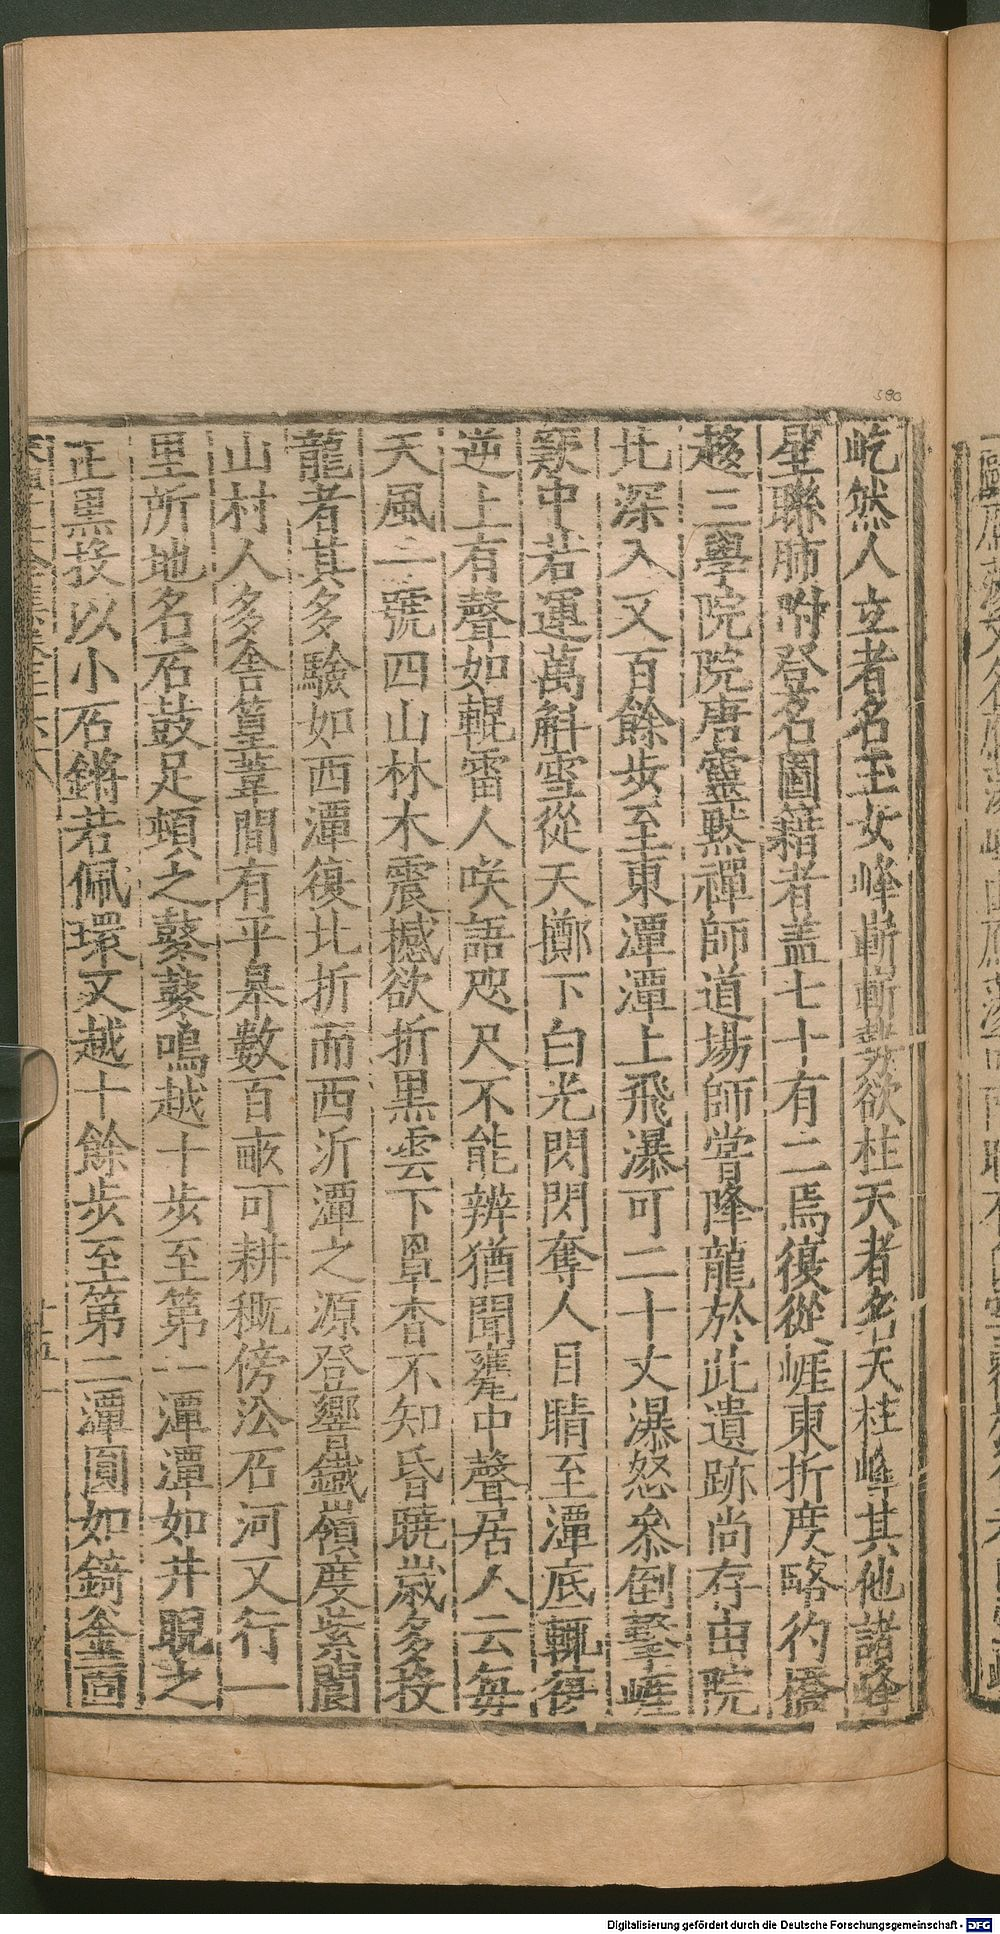 屹然人立者名玉女峰嶄嶄欲柱天者名天柱峰其他諸峰
星聯肺附登名圖籍者盖七十有二焉復從崕東折度略彴橋
越三學院院唐靈黙禪師道場師嘗降龍於此遺跡尚存由院
北深入又百餘步至東潭潭上飛瀑可二十丈瀑怒叅倒擊崕
竅中若運萬斛雪從天擲下白光閃閃奪人目睛至潭底輒復
逆上有聲如輥雷人咲語咫尺不能辨猶聞甕中聲居人云每
天風一號四山林木震撼欲折黒雲下罩杳不知昏曉歲多投
龍者其多驗如西潭復北折而西沂潭之源登響鐵嶺度紫閬
山村人多舎篁葦間有平皋數百畝可耕穊傍㳂石河又行一
里所地名石鼓足頓之鼕鼕鳴越十步至第一潭潭如井覗之
正黒投以小石鏘若佩環又越十餘步至第二潭圓如錡釜面
390
Digitalisierung gefördert durch die Deutsche Forschungsgemeinschaft - DFG